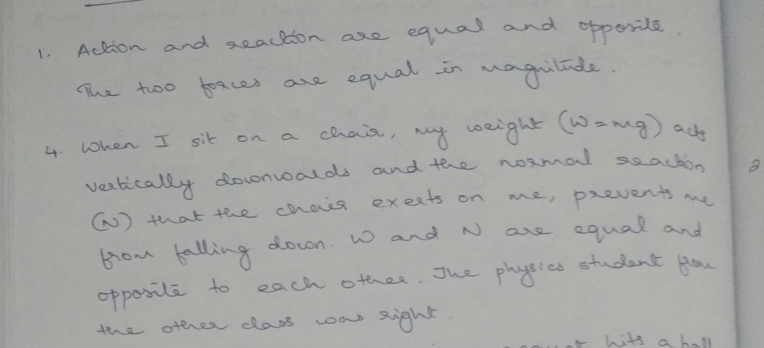 1. Action and reaction are equal and opposite.
The two forces are equal in magnitude.
4. When I sit on a chair, my weight (W = mg) acts
vertically downwards and the normal reaction
(N) that the chair exerts on me, prevents me
from falling down. W and N are equal and
opposite to each other. The physics student from
the other class was right.
hits a ball